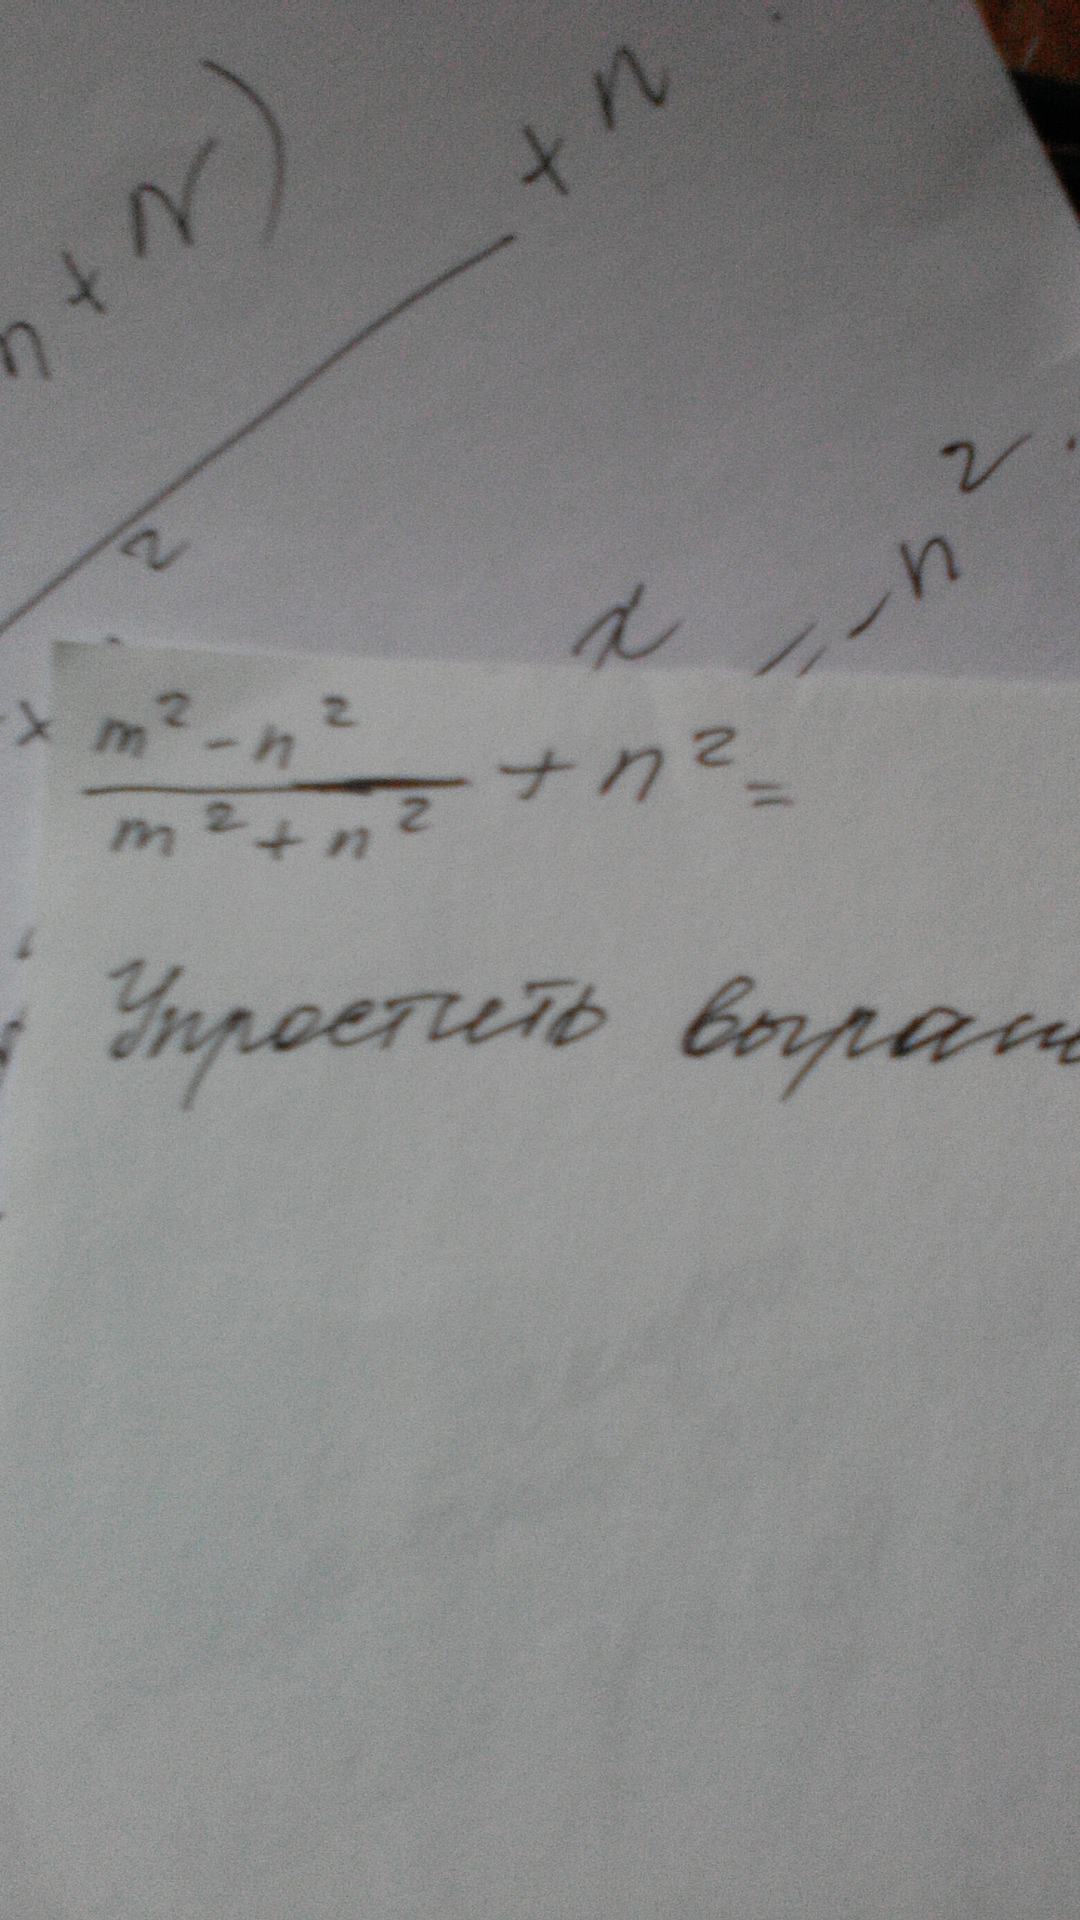 n + N)
+ n
2
n²
x
m² - n² / m² + n² + n² =
Упростить